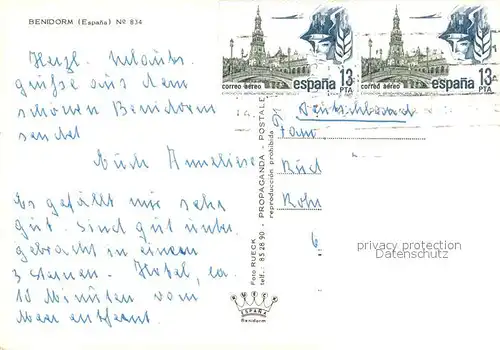 BENIDORM (España) Nº 834
Herzl. Urlaubs
grüße aus dem
schönen Benidorm
sendet
Euch Anneliese
Es gefällt mir sehr
gut. Sind gut unter
gebracht in einem
3 Sternen-Hotel, ca.
10 Minuten vom
Meer entfernt.
Foto RUECK
telf.: 85 28 90 - PROPAGANDA - POSTALES
reproducción prohibida
ESPAÑA
Benidorm
correo aéreo 13 PTA
españa
correo aéreo 13 PTA
españa
Deutschland
Fam
6
privacy protection
Datenschutz